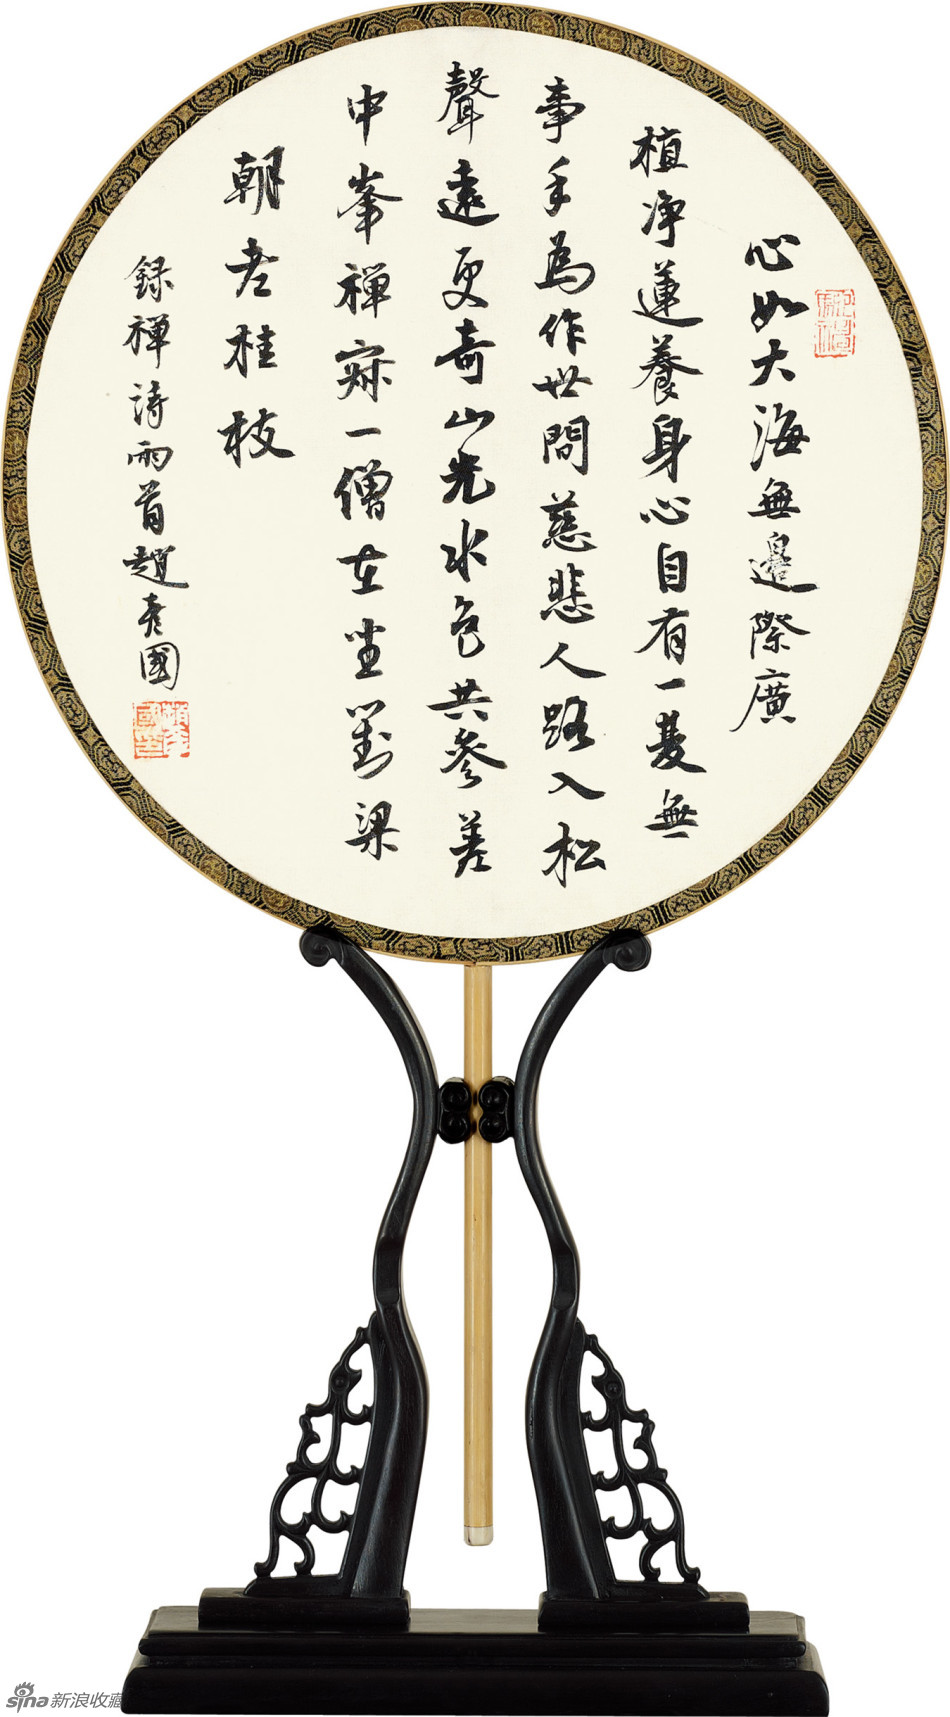 心如大海無邊際廣
植净蓮養身心自有一雙無
事手為作世間慈悲人路入松
聲遠更奇山光水色共參差
中峯禪寂一僧在坐對梁
朝老桂枝
録禪詩兩首趙彥國
sina新浪收藏